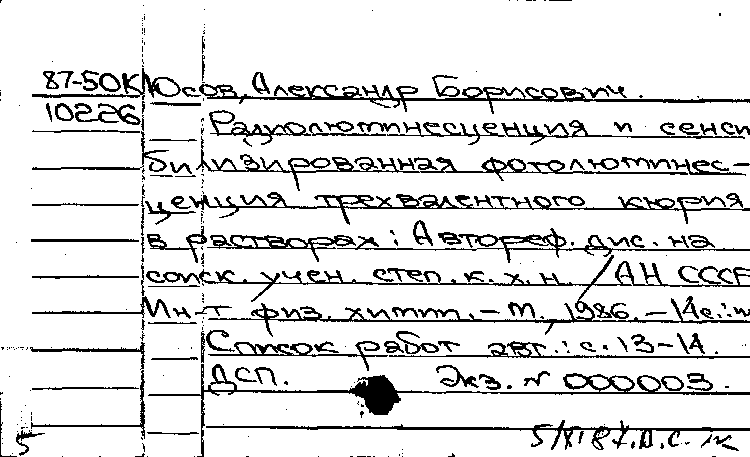 87-50К Юсов, Александр Борисович.
10226
Радиолюминесценция и сенси
билизированная фотолюминес-
ценция трехвалентного кюрия
в растворах: Автореф. дис. на
соиск. учен. степ. к. х. н. / АН СССР
Ин-т физ. химии. - М., 1986. - 14с.:и
Список работ авт.: с. 13-14.
ДСП. Экз. № 000003.
5